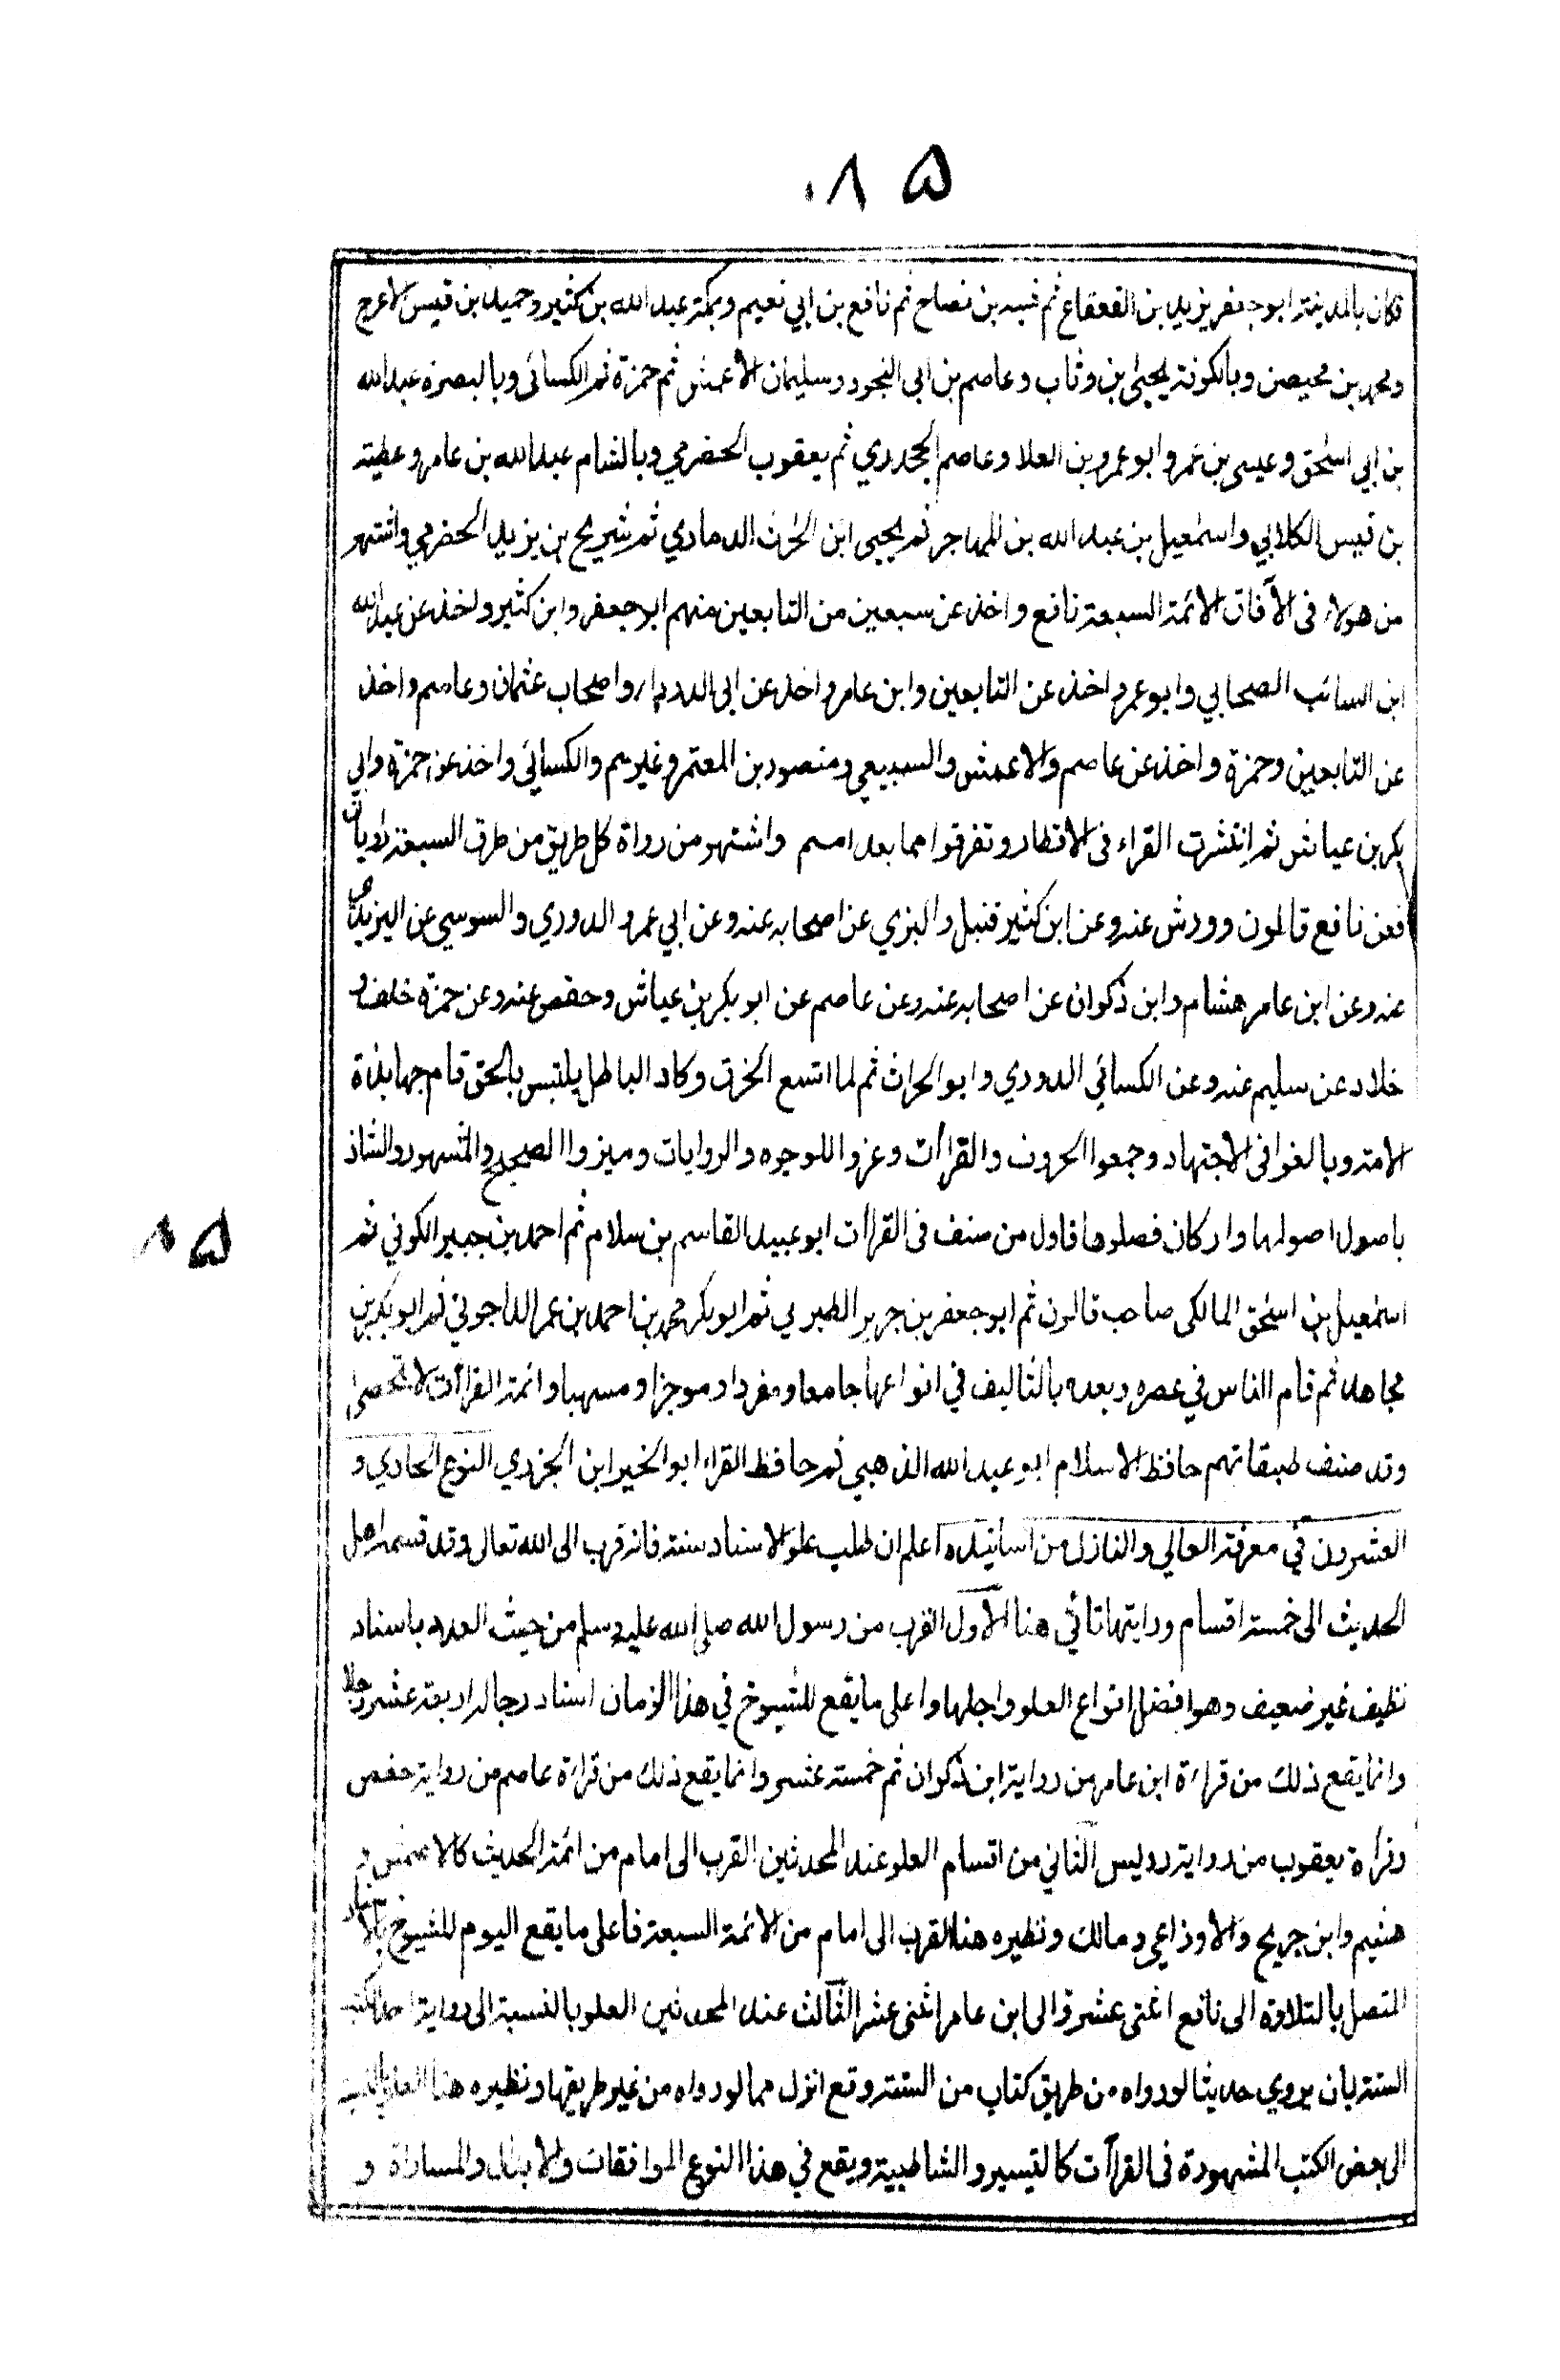 ٨٥
فكان بالمدينة ابوجعفر يزيد بن القعقاع ثم شيبه بن نصاح ثم نافع بن ابي نعيم وبمكة عبد الله بن كثير وحميد بن قيس الاعرج
ومحمد بن محيصن وبالكوفة يحيى بن وثاب وعاصم بن ابى النجود وسليمان الاعمش ثم حمزة ثم الكسائى وبالبصرة عبد الله
بن ابي اسحق وعيسى بن عمر وابو عمرو بن العلا وعاصم الجحدري ثم يعقوب الحضرمي وبالشام عبد الله بن عامر وعطية
بن قيس الكلابي واسمعيل بن عبد الله بن المهاجر ثم يحيى ابن الحرث الدماري ثم شريح بن يزيد الحضرمي واشتهر
من هولاء فى الآفاق الائمة السبعة نافع واخذ عن سبعين من التابعين منهم ابو جعفر وابن كثير واخذ عن عبد الله
ابن السائب الصحابي وابو عمرو اخذ عن التابعين وابن عامر واخذ عن ابى الدرداء واصحاب عثمان وعاصم واخذ
عن التابعين وحمزة واخذ عن عاصم والاعمش والسبيعي ومنصور بن المعتمر وغيرهم والكسائي واخذ عن حمزة وابي
بكر بن عياش ثم انتشرت القراء فى الاقطار وتفرقوا مما بعد امم واشتهر من رواة كل طريق من طرق السبعة راويان
فعن نافع قالون وورش عنه وعن ابن كثير قنبل والبزي عن اصحابه عنه وعن ابي عمرو الدوري والسوسي عن اليزيدى
عنه وعن ابن عامر هشام وابن ذكوان عن اصحابه عنه وعن عاصم عن ابو بكر بن عياش وحفص عنه وعن حمزة خلف و
خلاد عن سليم عنه وعن الكسائي الدوري وابو الحراث ثم لما اتسع الخرق وكاد الباطل يلتبس بالحق قام جهابذة
الامة وبالغوا فى الاجتهاد وجمعوا الحروف والقرأت وعزوا للوجوه والروايات وميزوا الصحيح والمشهور والشاذ
باصول اصولها واركان فصلوها فاول من صنف فى القرأت ابو عبيد القاسم بن سلام ثم احمد بن جبير الكوفي ثم
اسمعيل بن اسحق المالكى صاحب قالون ثم ابو جعفر بن جرير الطبري ثم ابو بكر محمد بن احمد بن عمر الداجوني ثم ابو بكر بن
مجاهد ثم قام الناس في عصره وبعده بالتاليف في انواعها جامعا ومفردا وموجزا ومسهبا وائمة القرأت لا تحصى
وقد صنف طبقاتهم حافظ الاسلام ابو عبد الله الذهبي ثم حافظ القراء ابو الخير ابن الجزري النوع الحادي و
العشرون في معرفة العالي والنازل من اسانيده اعلم ان طلب علو الاسناد سنة فانه قرب الى الله تعالى وقد قسمه اهل
الحديث الى خمسة اقسام ورايتها تاتي هنا الاول القرب من رسول الله صلى الله عليه وسلم من حيث العدد باسناد
نظيف غير ضعيف وهو افضل انواع العلو واجلها واعلى ما يقع للشيوخ في هذا الزمان اسناد رجاله اربعة عشر رجلا
وانما يقع ذلك من قراءة ابن عامر من رواية ابن ذكوان ثم خمسة عشر وانما يقع ذلك من قراءة عاصم من رواية حفص
وقرأة يعقوب من رواية رويس الثاني من اقسام العلو عند المحدثين القرب الى امام من ائمة الحديث كالاعمش و
هشيم وابن جريح والاوزاعى ومالك ونظيره هنا القرب الى امام من الائمة السبعة فاعلى ما يقع اليوم للشيوخ بالاسناد
المتصل بالتلاوة الى نافع اثنى عشر والى ابن عامر اثنى عشر الثالث عند المحدثين العلو بالنسبة الى رواية احد الكتب
الستة بان يروي حديثا لو رواه من طريق كتاب من الستة وقع انزل مما لو رواه من غير طريقها ونظيره هنا العلو بالنسبة
الى بعض الكتب المشهورة فى القرآت كالتيسير والشاطبية ويقع في هذا النوع الموافقات والابدال والمساواة و
٨٥